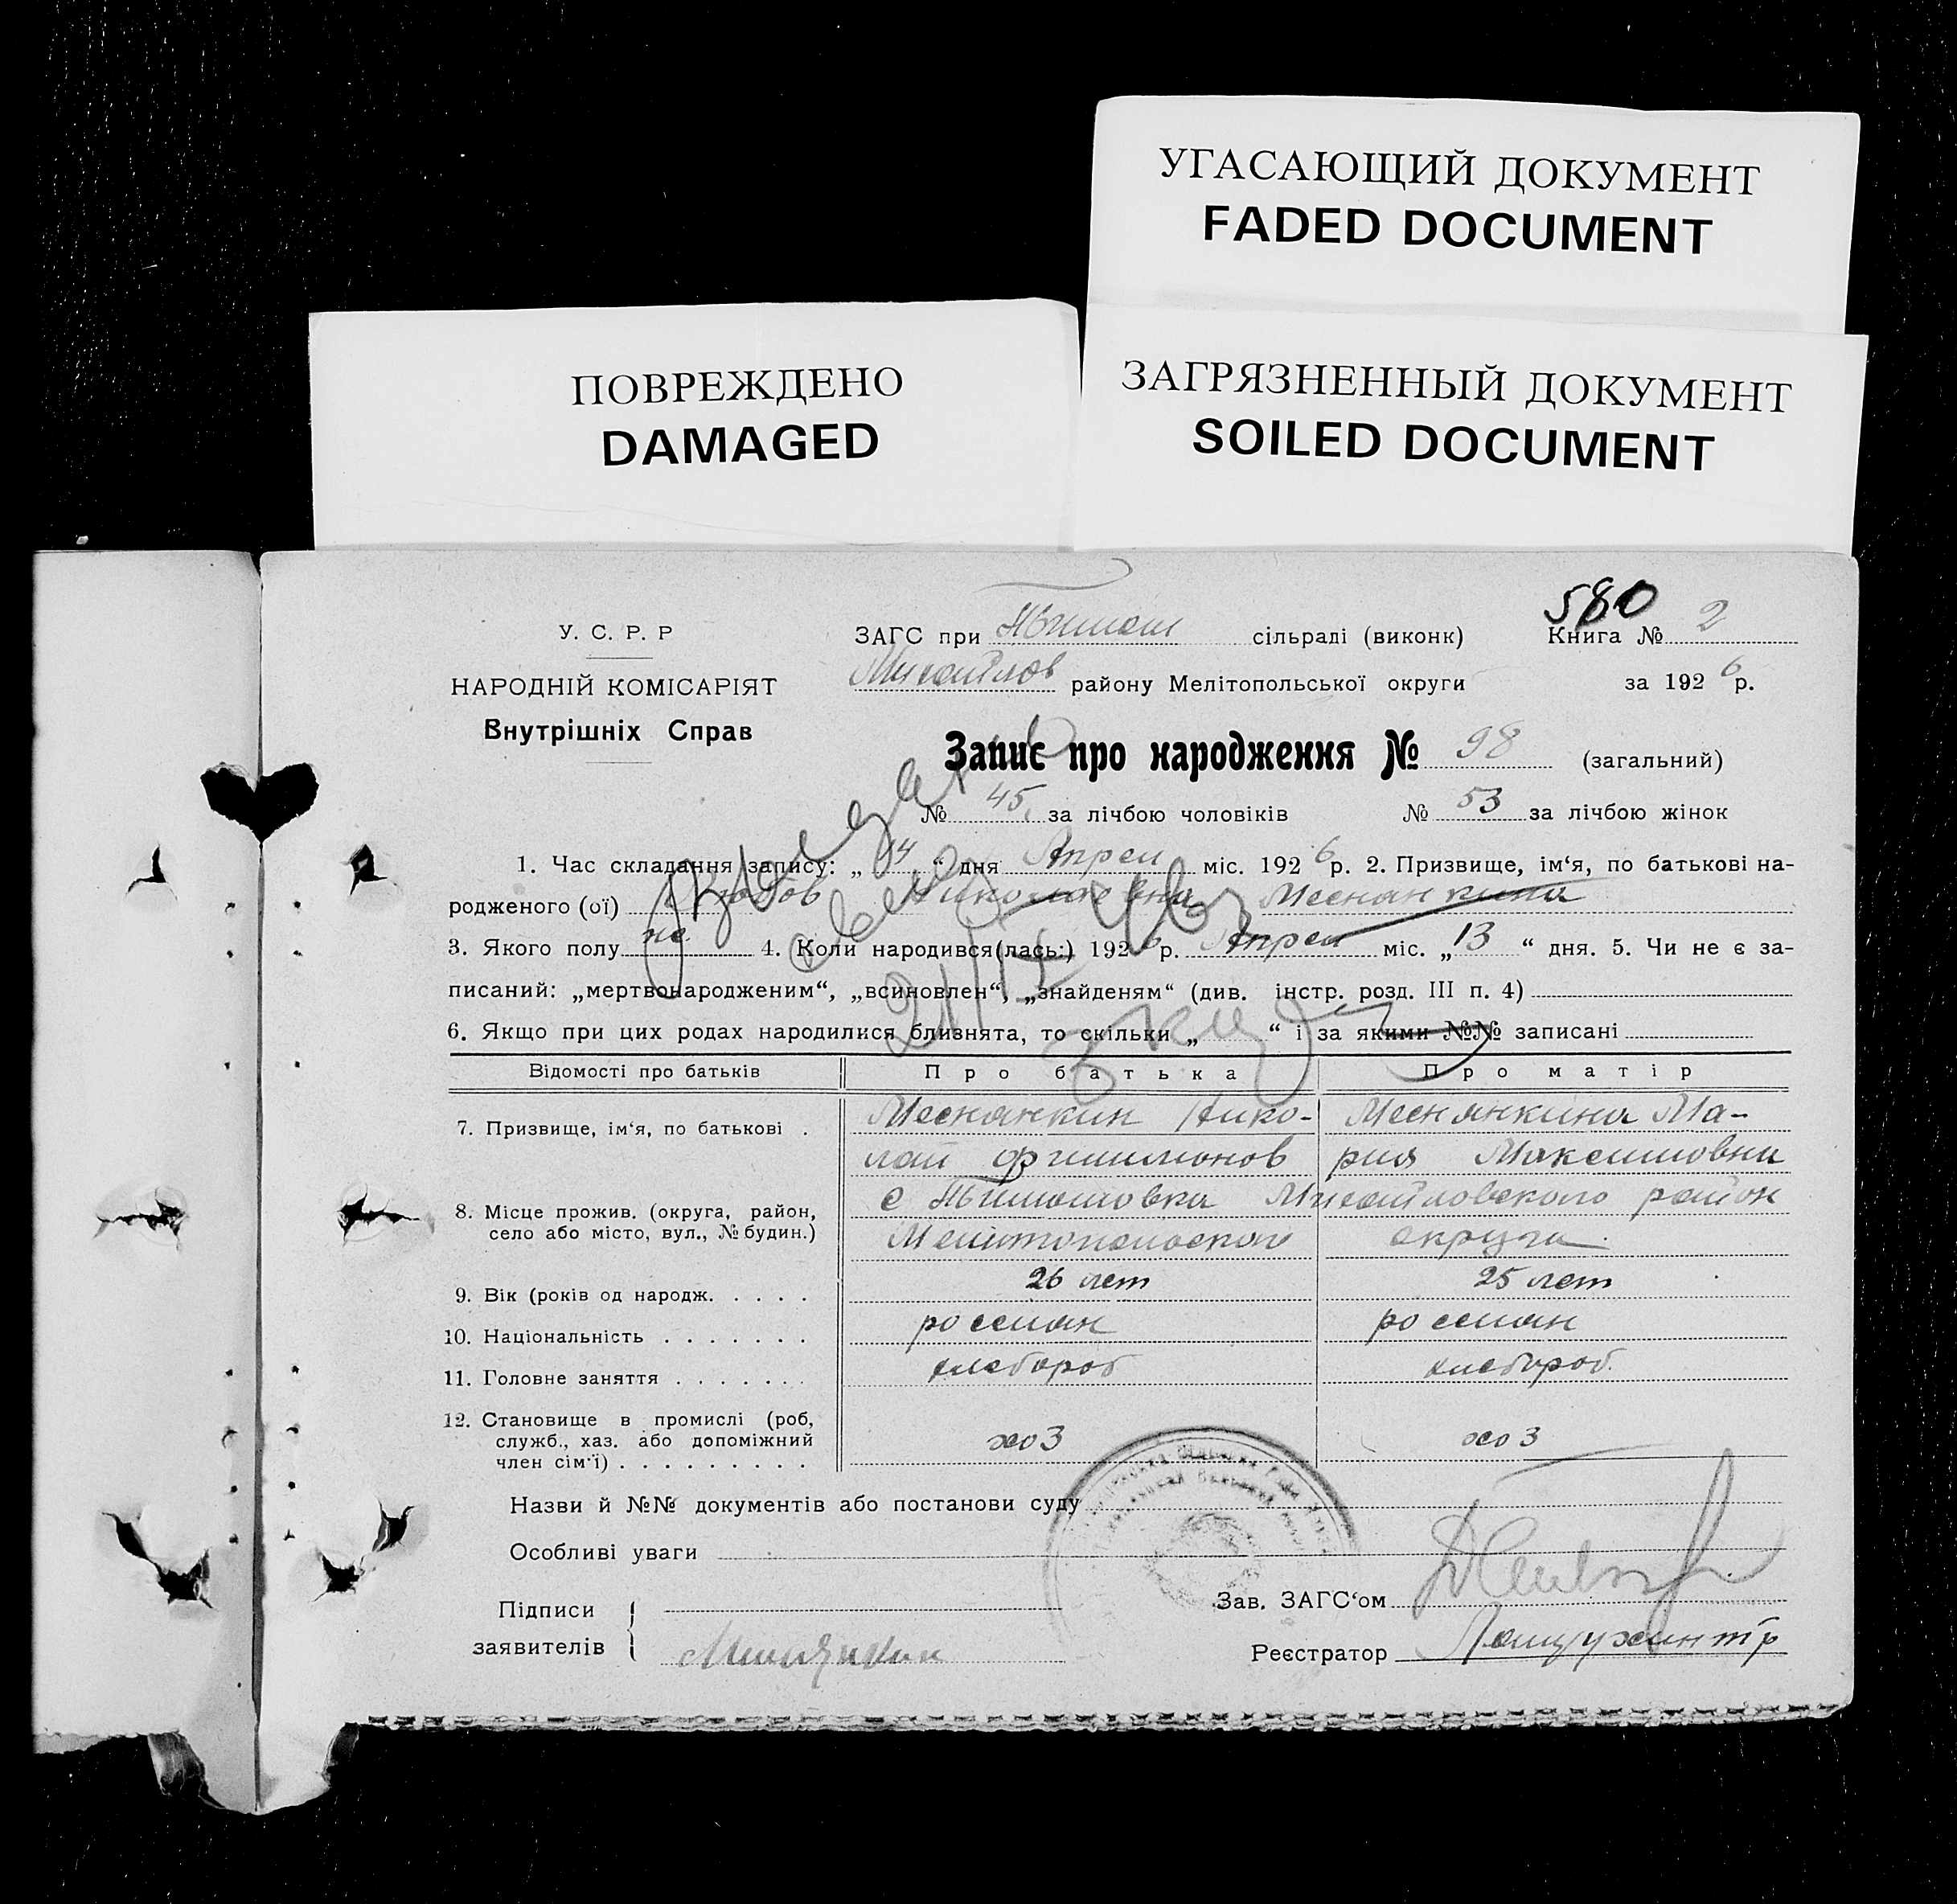 УГАСАЮЩИЙ ДОКУМЕНТ
FADED DOCUMENT
ПОВРЕЖДЕНО
DAMAGED
ЗАГРЯЗНЕННЫЙ ДОКУМЕНТ
SOILED DOCUMENT
580
У. С. Р. Р
НАРОДНІЙ КОМІСАРІЯТ
Внутрішніх Справ
ЗАГС при сільраді (виконк) Книга № 2
Михайлов району Мелітопольської округи за 1926 р.
Запис про народження № 98 (загальний)
№ 45 за лічбою чоловіків № 53 за лічбою жінок
1. Час складання запису: „14“ дня Апрел міс. 1926 р. 2. Призвище, ім‘я, по батькові на-
родженого (ої) Любов Николаевна Меснянкина
3. Якого полу же 4. Коли народився(лась:) 1926 р. Апрел міс. „13“ дня. 5. Чи не є за-
писаний: „мертвонародженим“, „всиновлен“, „знайденям“ (див. інстр. розд. III п. 4)
6. Якщо при цих родах народилися близнята, то скільки „ “ і за якими №№ записані
Відомості про батьків Про батька Про матір
7. Призвище, ім‘я, по батькові . Меснянкин Нико- Меснянкина Ма-
лай Филимонов рия Максимовна
8. Місце прожив. (округа, район, село або місто, вул., № будин.) с Михайловского район
Мелитопольской округи
9. Вік (років од народж. . . . . 26 лет 25 лет
10. Національність . . . . . . . россиян россиян
11. Головне заняття . . . . . . . хлебороб хлебороб
12. Становище в промислі (роб,
служб., хаз. або допоміжний хоз хоз
член сім‘ї) . . . . . . . . .
Назви й №№ документів або постанови суду
Особливі уваги
Підписи
заявителів
Зав. ЗАГС‘ом
Реєстратор